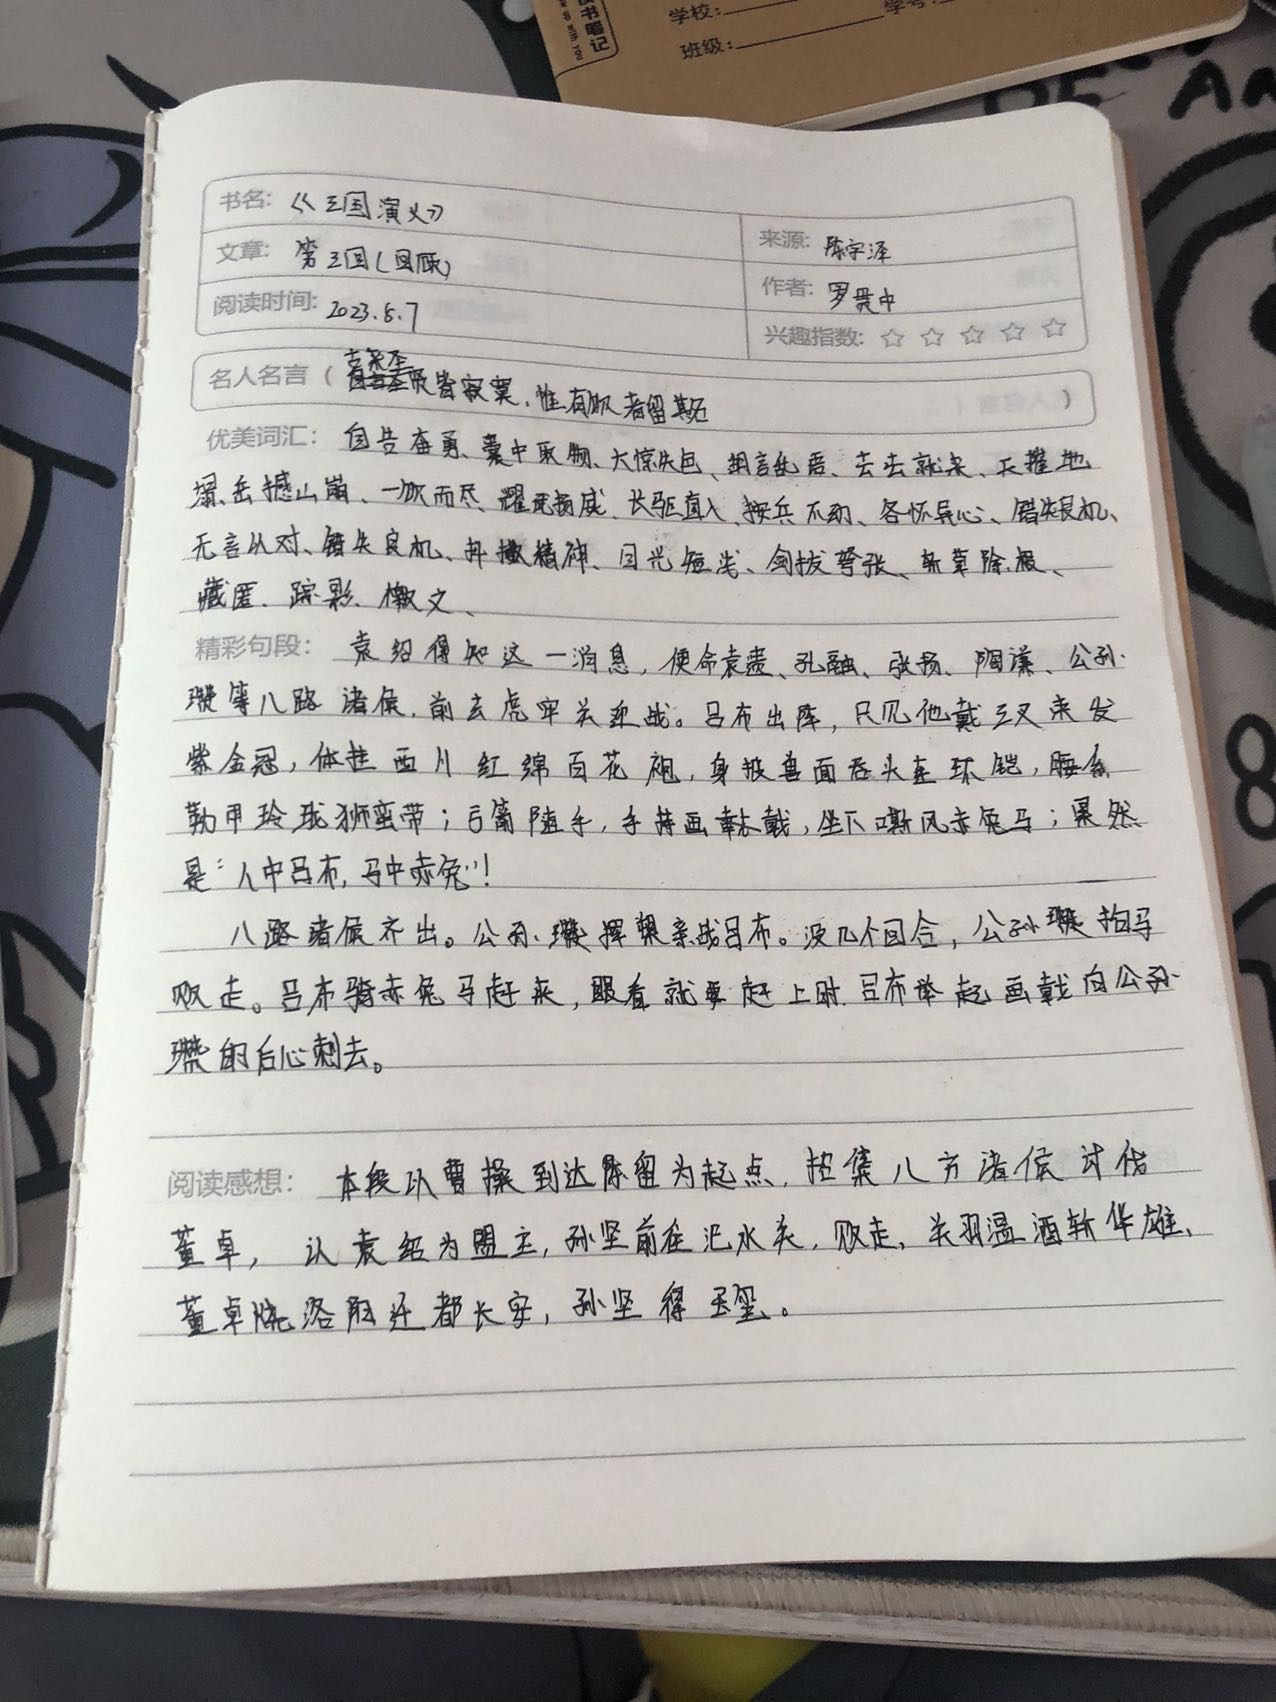 读书笔记
学校:
学号:
班级:
书名: 《三国演义》
来源: 陈宇泽
文章: 第三回(回顾)
作者: 罗贯中
阅读时间: 2023.8.7
兴趣指数: ☆ ☆ ☆ ☆ ☆
名人名言( 古来圣贤皆寂寞,惟有饮者留其名 )
优美词汇: 自告奋勇、囊中取物、大惊失色、胡言乱语、去去就来、天摧地
塌、岳撼山崩、一饮而尽、耀武扬威、长驱直入、按兵不动、各怀异心、错失良机、
无言以对、错失良机、抖擞精神、目光短浅、剑拔弩张、斩草除根、
藏匿、踪影、檄文、
精彩句段: 袁绍得知这一消息,便命袁遗、孔融、张扬、陶谦、公孙
瓒等八路诸侯,前去虎牢关迎战。吕布出阵,只见他戴三叉束发
紫金冠,体挂西川红绵百花袍,身披兽面吞头连环铠,腰系
勒甲玲珑狮蛮带;弓箭随手,手持画戟,坐下嘶风赤兔马;果然
是“人中吕布,马中赤兔”!
八路诸侯齐出。公孙瓒挥槊亲战吕布。没几个回合,公孙瓒拍马
败走。吕布骑赤兔马赶来,眼看就要赶上时.吕布举起画戟向公孙
瓒的后心刺去。
阅读感想: 本段以曹操到达陈留为起点,招集八方诸侯讨伐
董卓,认袁绍为盟主,孙坚前在汜水关,败走,关羽温酒斩华雄、
董卓烧洛阳迁都长安,孙坚得玉玺。